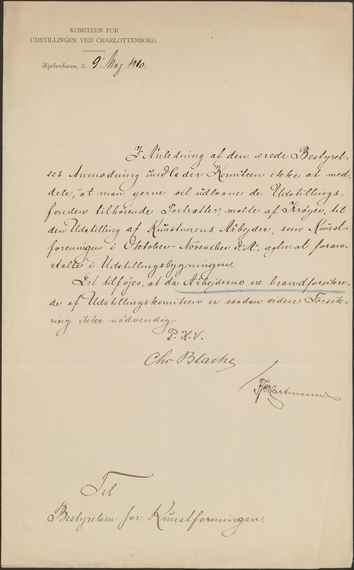 KOMITEEN FOR
UDSTILLINGEN VED CHARLOTTENBORG.
Kjøbenhavn, d. 9 Maj 1910.
I Anledning af den ærede Bestyrel-
ses Anmodning undlader Komiteen ikke at med-
dele, at man gerne vil udlaane de Udstillings-
fonden tilhørende Portrætter, malte af Krøyer, til
den Udstilling af Kunstnerens Arbejder, som Kunst-
foreningen i Oktober-November d. A. agter at foran-
stalte i Udstillingsbygningen.
Det tilføjes, at da Arbejderne er brandforsikre-
de af Udstillingskomiteen er saadan videre Forsik-
ring ikke nødvendig.
P. K. V.
Chr Blache
Til
Bestyrelsen for Kunstforeningen.